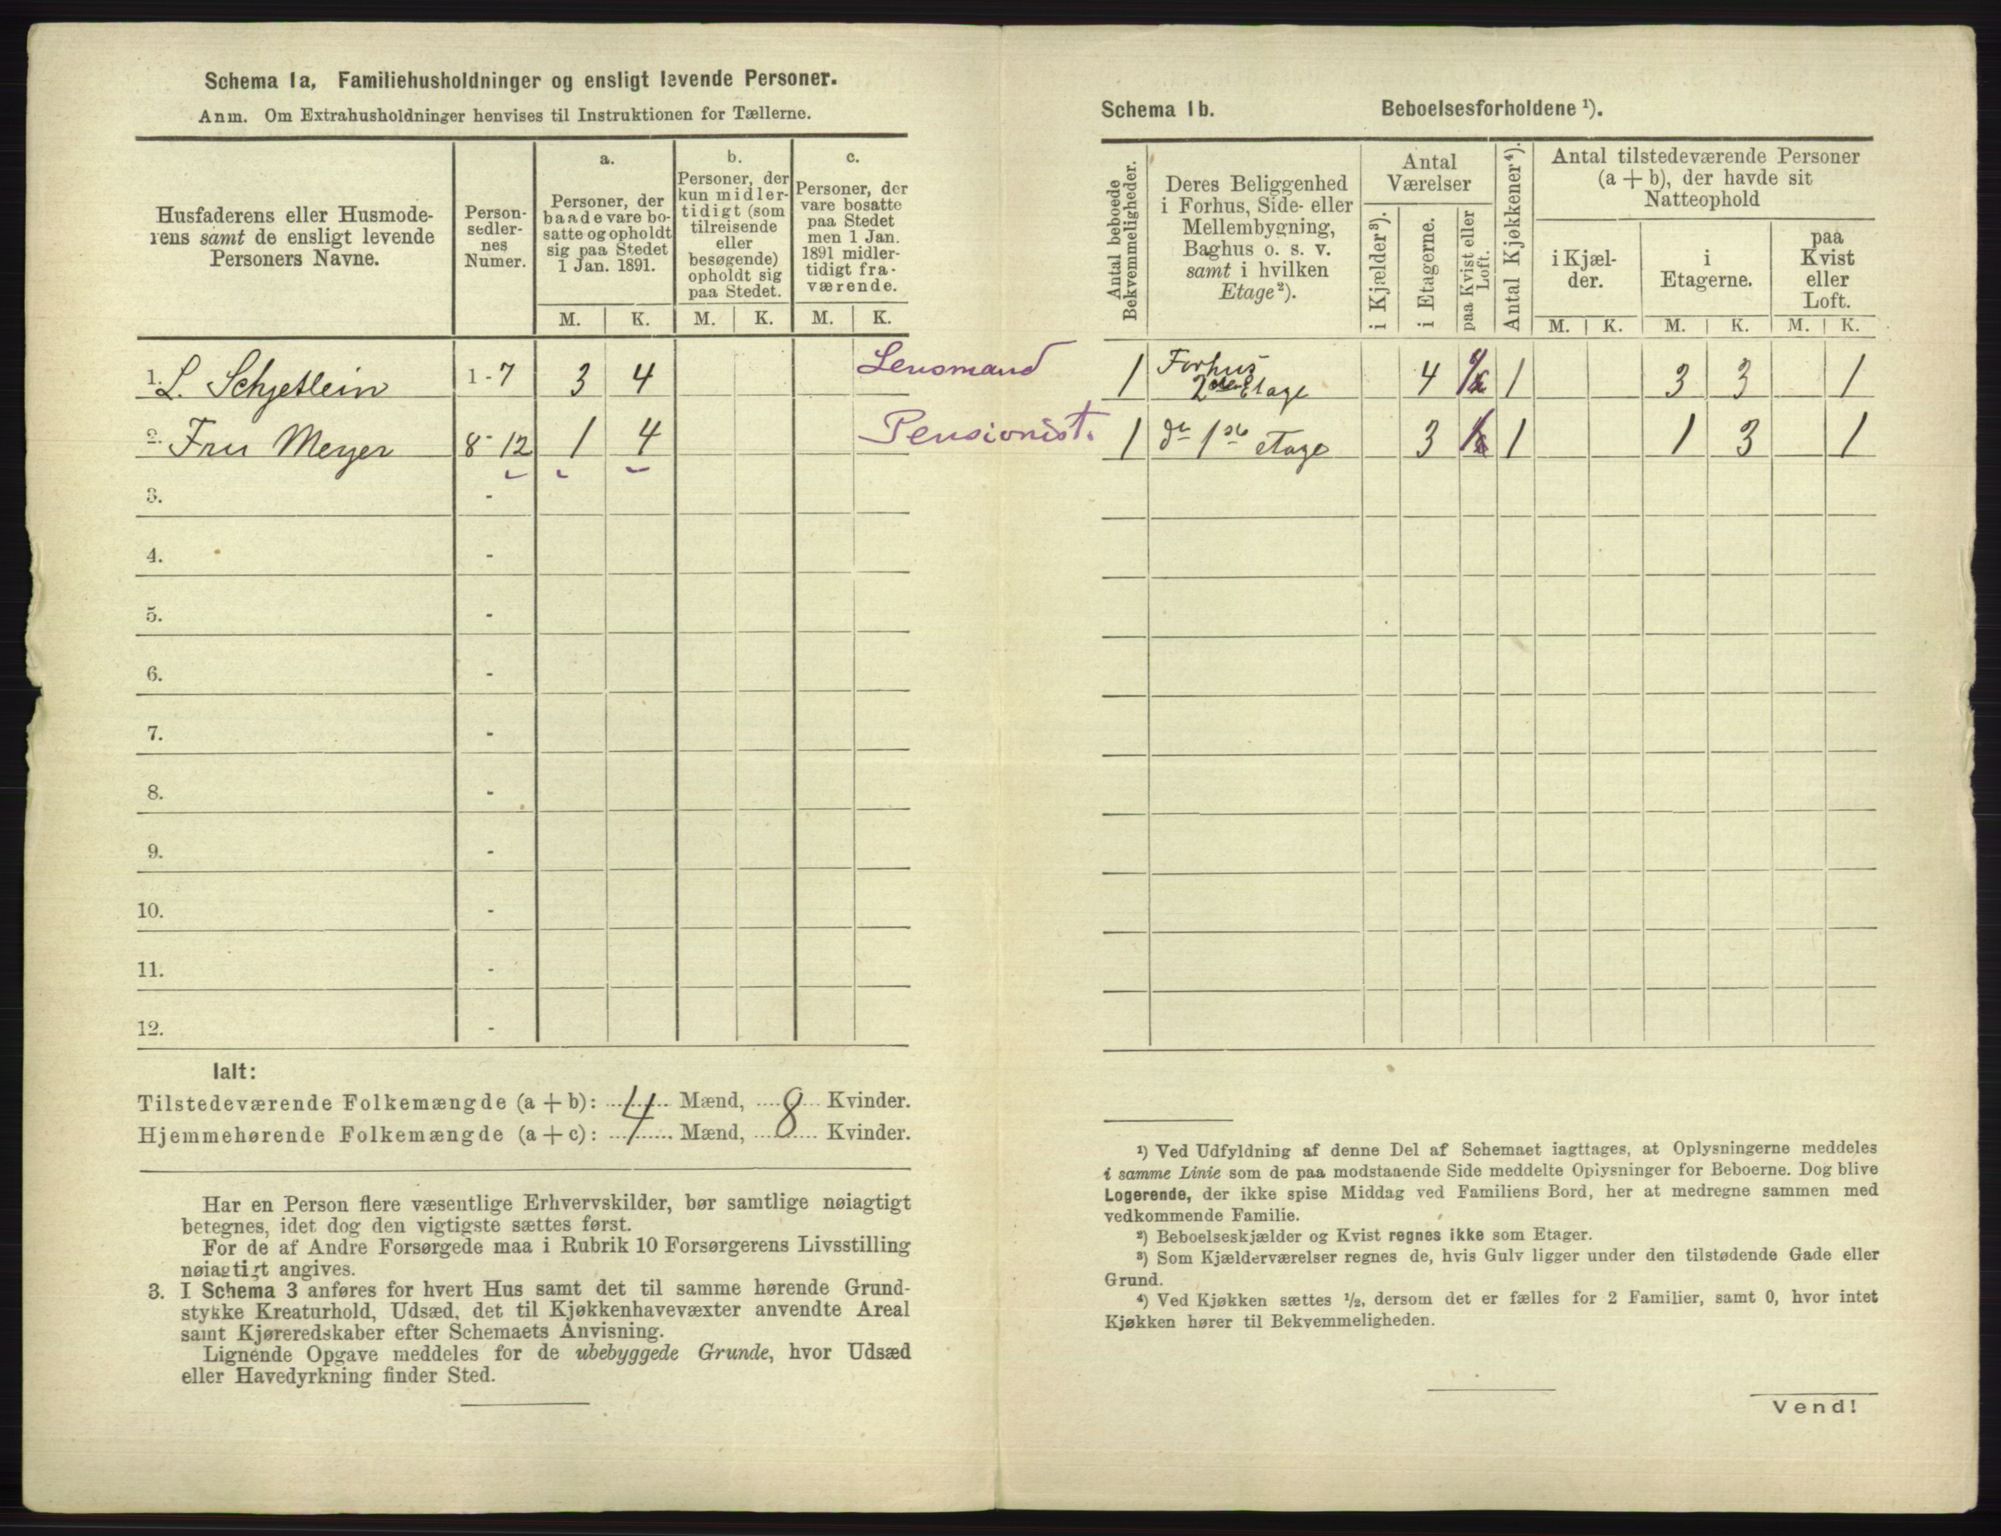 Schema 1a, Familiehusholdninger og ensligt levende Personer.
Anm. Om Extrahusholdninger henvises til Instruktionen for Tællerne.
Husfaderens eller Husmode-
rens samt de ensligt levende
Personers Navne.
Person-
sedler-
nes
Numer.
a.
Personer, der
baade vare bo-
satte og opholdt
sig paa Stedet
1 Jan. 1891.
b.
Personer, der
kun midler-
tidigt (som
tilreisende
eller
besøgende)
opholdt sig
paa Stedet.
c.
Personer, der
vare bosatte
paa Stedet
men 1 Jan.
1891 midler-
tidigt fra-
værende.
M. K. M. K. M. K.
1. L. Schjetlein 1-7 3 4 Lensmand
2. Fru Meyer 8-12 1 4 Pensionist.
3. -
4. -
5. -
6. -
7. -
8. -
9. -
10. -
11. -
12. -
Ialt:
Tilstedeværende Folkemængde (a + b): 4 Mænd, 8 Kvinder.
Hjemmehørende Folkemængde (a + c): Mænd, Kvinder.
Har en Person flere væsentlige Erhvervskilder, bør samtlige nøiagtigt
betegnes, idet dog den vigtigste sættes først.
For de af Andre Forsørgede maa i Rubrik 10 Forsørgerens Livsstilling
nøiagtigt angives.
3. I Schema 3 anføres for hvert Hus samt det til samme hørende Grund-
stykke Kreaturhold, Udsæd, det til Kjøkkenhavevæxter anvendte Areal
samt Kjøreredskaber efter Schemaets Anvisning.
Lignende Opgave meddeles for de ubebyggede Grunde, hvor Udsæd
eller Havedyrkning finder Sted.
Schema 1b. Beboelsesforholdene ¹).
Antal beboede
Bekvemmeligheder.
Deres Beliggenhed
i Forhus, Side- eller
Mellembygning,
Baghus o. s. v.
samt i hvilken
Etage²).
Antal
Værelser
i Kjælder³).
i Etagerne.
paa Kvist eller
Loft.
Antal Kjøkkener⁴).
Antal tilstedeværende Personer
(a + b), der havde sit
Natteophold
i Kjæl-
der.
i
Etagerne.
paa
Kvist
eller
Loft.
M. K. M. K. M. K.
1 Forhus
2den Etage 4 1 3 3 1
1 do 1ste etage 3 1 1 3 1
¹) Ved Udfyldning af denne Del af Schemaet iagttages, at Oplysningerne meddeles
i samme Linie som de paa modstaaende Side meddelte Oplysninger for Beboerne. Dog blive
Logerende, der ikke spise Middag ved Familiens Bord, her at medregne sammen med
vedkommende Familie.
²) Beboelseskjælder og Kvist regnes ikke som Etager.
³) Som Kjælderværelser regnes de, hvis Gulv ligger under den tilstødende Gade eller
Grund.
⁴) Ved Kjøkken sættes ½, dersom det er fælles for 2 Familier, samt 0, hvor intet
Kjøkken hører til Bekvemmeligheden.
Vend!